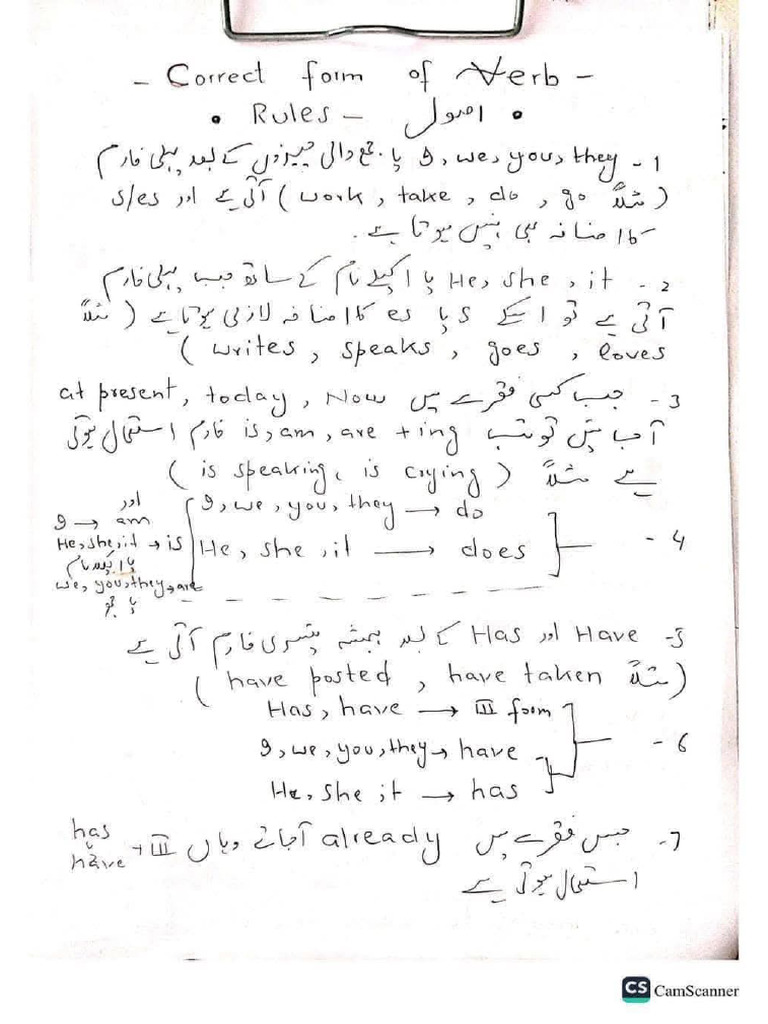 - Correct form of Verb -
• Rules - اصول •
1 - I, we, you, they یا جمع والی چیزوں کے بعد پہلی فارم
آتی ہے اور s/es (work, take, do, go مثلاً)
کا اضافہ بھی نہیں ہوتا ہے۔
2 - He, she, it یا اکیلے نام کے ساتھ جب پہلی فارم
آتی ہے تو اسکے s یا es کا اضافہ لازمی ہوتا ہے (مثلاً
writes, speaks, goes, loves)
3 - جب کسی فقرے میں at present, today, Now
آ جائیں تو تب is, am, are + ing فارم استعمال ہوتی
ہے مثلاً (is speaking, is crying)
4 - I, we, you, they → do
He, she, it → does
اور
I → am
He, she, it → is
یا اکیلا نام
we, you, they → are
یا جمع
5 - Have اور Has کے بعد ہمیشہ تیسری فارم آتی ہے
(مثلاً have posted, have taken)
6 - Has, have → III form
I, we, you, they → have
He, she, it → has
7 - جس فقرے میں already آجائے وہاں has یا have + III
استعمال ہوتی ہے
CS CamScanner